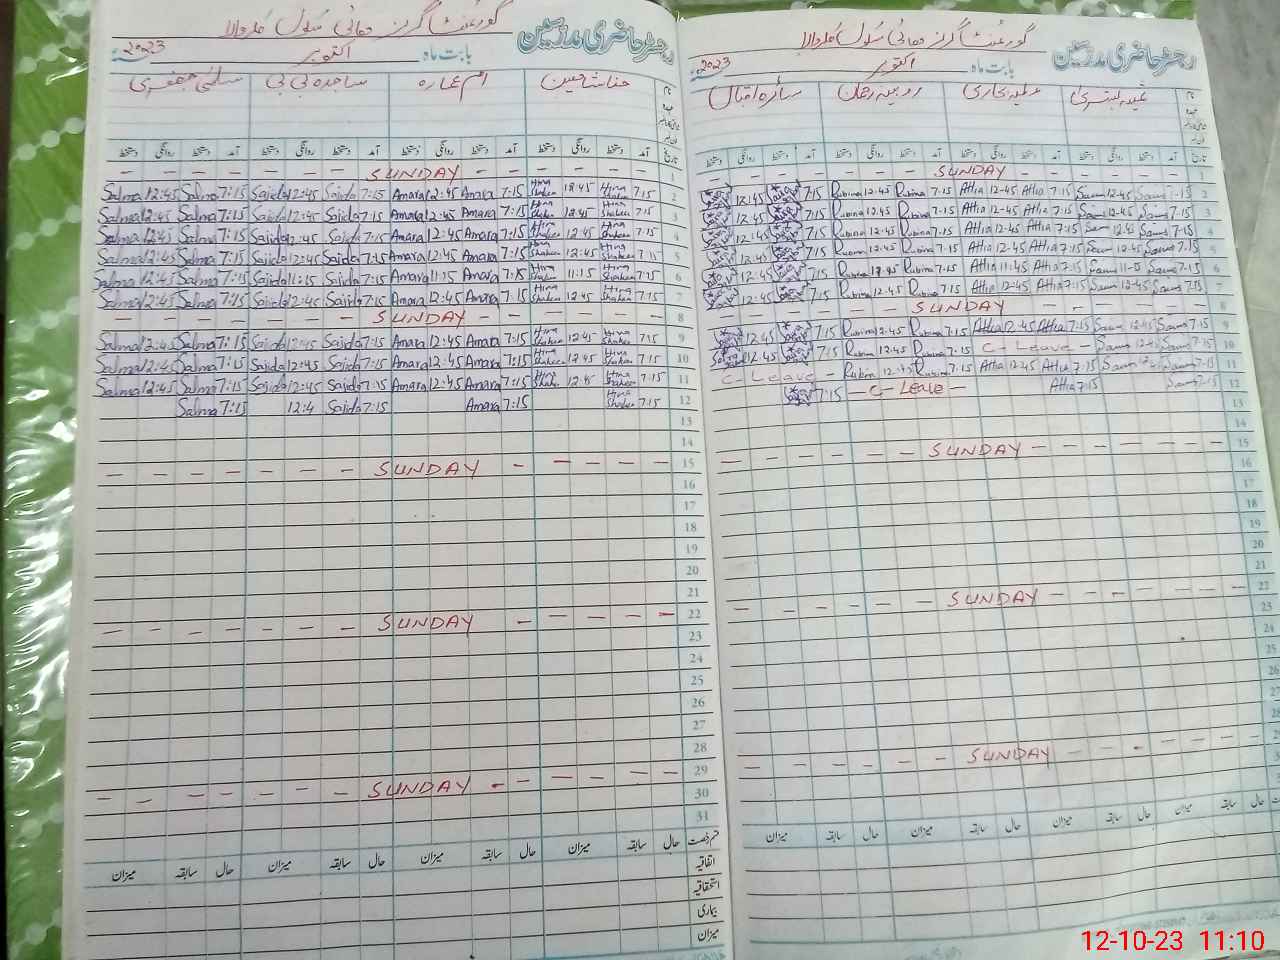 رجسٹر حاضری مدرسین گورنمنٹ گرلز ہائی سکول
بابت ماہ اکتوبر 2023
حنا شاہین ام عمارہ ساجدہ بی بی سلمیٰ جعفری
تاریخ آمد دستخط روانگی دستخط آمد دستخط روانگی دستخط آمد دستخط روانگی دستخط آمد دستخط روانگی دستخط
- - - - SUNDAY - - - - 1
Salma 12:45 Salma 7:15 Sajida 12:45 Sajida 7:15 Amara 12:45 Amara 7:15 Hina Shaheen 12:45 Hina Shaheen 7:15 2
Salma 12:45 Salma 7:15 Sajida 12:45 Sajida 7:15 Amara 12:45 Amara 7:15 Hina Shaheen 12:45 Hina Shaheen 7:15 3
Salma 12:45 Salma 7:15 Sajida 12:45 Sajida 7:15 Amara 12:45 Amara 7:15 Hina Shaheen 12:45 Hina Shaheen 7:15 4
Salma 12:45 Salma 7:15 Sajida 12:45 Sajida 7:15 Amara 12:45 Amara 7:15 Hina Shaheen 12:45 Hina Shaheen 7:15 5
Salma 12:45 Salma 7:15 Sajida 11:15 Sajida 7:15 Amara 11:15 Amara 7:15 Hina Shaheen 11:15 Hina Shaheen 7:15 6
Salma 12:45 Salma 7:15 Sajida 12:45 Sajida 7:15 Amara 12:45 Amara 7:15 Hina Shaheen 12:45 Hina Shaheen 7:14 7
- - - - SUNDAY - - - - 8
Salma 12:45 Salma 7:15 Sajida 12:45 Sajida 7:15 Amara 12:45 Amara 7:15 Hina Shaheen 12:45 Hina Shaheen 7:15 9
Salma 12:45 Salma 7:15 Sajida 12:45 Sajida 7:15 Amara 12:45 Amara 7:15 Hina Shaheen 12:45 Hina Shaheen 7:15 10
Salma 12:45 Salma 7:15 Sajida 12:45 Sajida 7:15 Amara 12:45 Amara 7:15 Hina Shaheen 12:45 Hina Shaheen 7:15 11
Salma 7:15 12:4 Sajida 7:15 Amara 7:15 Hina Shaheen 7:15 12
13
14
- - - - - - SUNDAY - - - - - 15
16
17
18
19
20
21
- - - - - - SUNDAY - - - - - 22
23
24
25
26
27
28
- - - - - - SUNDAY - - - - - 29
30
31
ختم رخصت حال سابقہ میزان حال سابقہ میزان حال سابقہ میزان حال سابقہ میزان
اتفاقیہ
استحقاقیہ
بیماری
میزان
رجسٹر حاضری مدرسین گورنمنٹ گرلز ہائی سکول
بابت ماہ اکتوبر 2023
عطیہ بخاری روبینہ رحمان سائرہ اقبال
تاریخ آمد دستخط روانگی دستخط آمد دستخط روانگی دستخط آمد دستخط روانگی دستخط آمد دستخط روانگی دستخط
SUNDAY 1
12:45 7:15 Rubina 12:45 Rubina 7:15 Attia 12-45 Attia 7:15 12-45 7-15 2
12:45 7:15 Rubina 12:45 Rubina 7:15 Attia 12-45 Attia 7:15 12-45 7-15 3
12:45 7:15 Rubina 12:45 Rubina 7:15 Attia 12-45 Attia 7:15 12-45 7:15 4
12:45 7:15 Rubina 12:45 Rubina 7:15 Attia 12-45 Attia 7:15 12-45 7:15 5
12:45 7:15 Rubina 12:45 Rubina 7:15 Attia 11:45 Attia 7:15 7:15 6
12:45 7:15 Rubina 12:45 Rubina 7:15 Attia 12-45 Attia 7:15 12-45 7:15 7
- - - - SUNDAY - - - - 8
12:45 7:15 Rubina 12:45 Rubina 7:15 Attia 12-45 Attia 7:15 12:45 7:15 9
12:45 7:15 Rubina 12:45 Rubina 7:15 C-Leave - 12:45 7:15 10
C-Leave - Rubina 12:45 Rubina 7:15 Attia 12-45 Attia 7:15 12:45 7:15 11
7:15 - C-Leave - Attia 7:15 7:15 12
13
14
- - - - - SUNDAY - - - - - - 15
16
17
18
19
20
21
- - - - - SUNDAY - - - - - - 22
23
24
25
26
27
28
- - - - - SUNDAY - - - - - -
حال سابقہ میزان حال سابقہ میزان حال سابقہ میزان حال سابقہ میزان
12-10-23 11:10